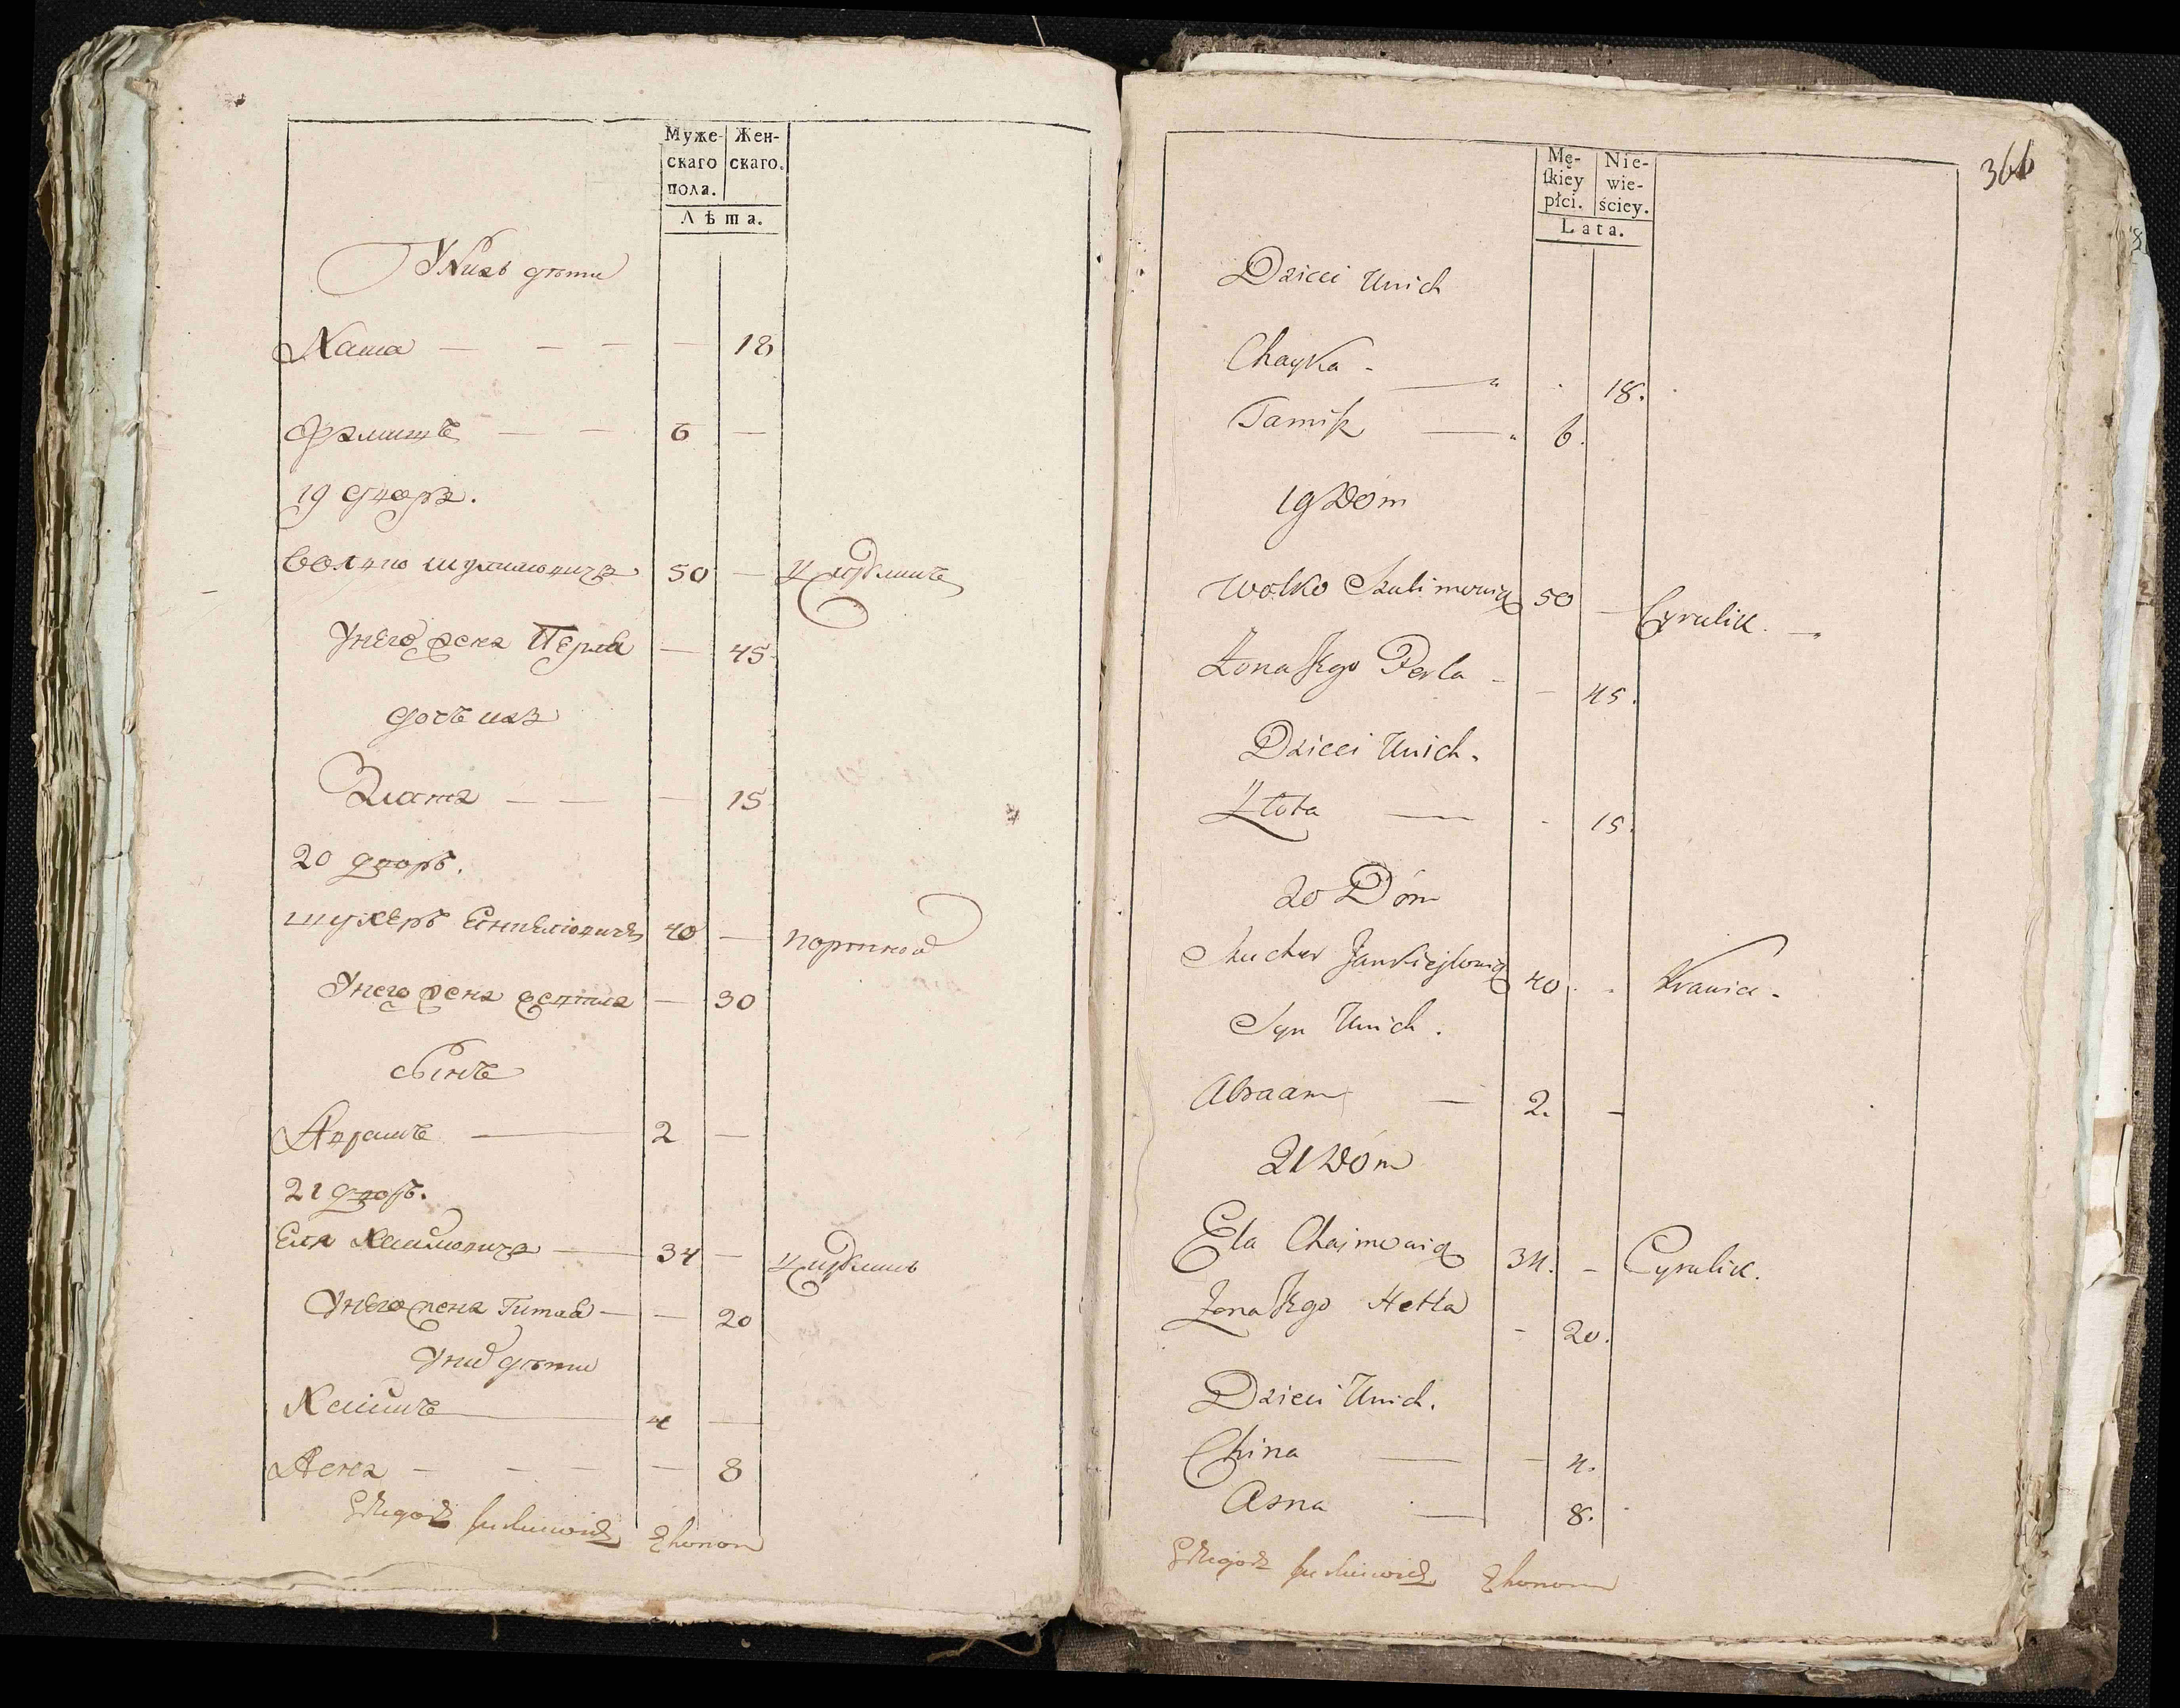 Муже- Жен-
скаго скаго.
пола.
Лѣта.
У Нихъ дѣти
Хаша — — — — 18
6 —
19 дворъ.
Волко Шулимовичъ 50 — Цырулникъ
У него жена Перла — 45
дочь ихъ
Злата — — — 15
20 дворъ.
Шухеръ 40 — портной
У него жена — 30
Сынъ
Абрамъ — 2 —
21 дворъ.
Еля Хаимовичъ — 34 — Цырулникъ
У него жена Гитла — — 20
У них дѣти
Хаимъ — 4 —
Асна — — — — 8
Ekonom
366
Mę- Nie-
skiey wie-
płci. ściey.
Lata.
Dzieci Unich
Chayka - — 18.
6.
19 Dóm
Wolko Szulimowicz 50 — Cyrulik. —
Żona Jego Perla - - 45.
Dzieci Unich.
Złota — - 15.
20 Dóm
Szucher Jankielowicz 40. . Krawiec.
Syn Unich.
Abraam — 2. -
21 Dóm
Ela Chaimowicz 34. - Cyrulik.
Żona Jego Hetla - 20.
Dzieci Unich.
China — - 4.
Asna — 8.
Ekonom